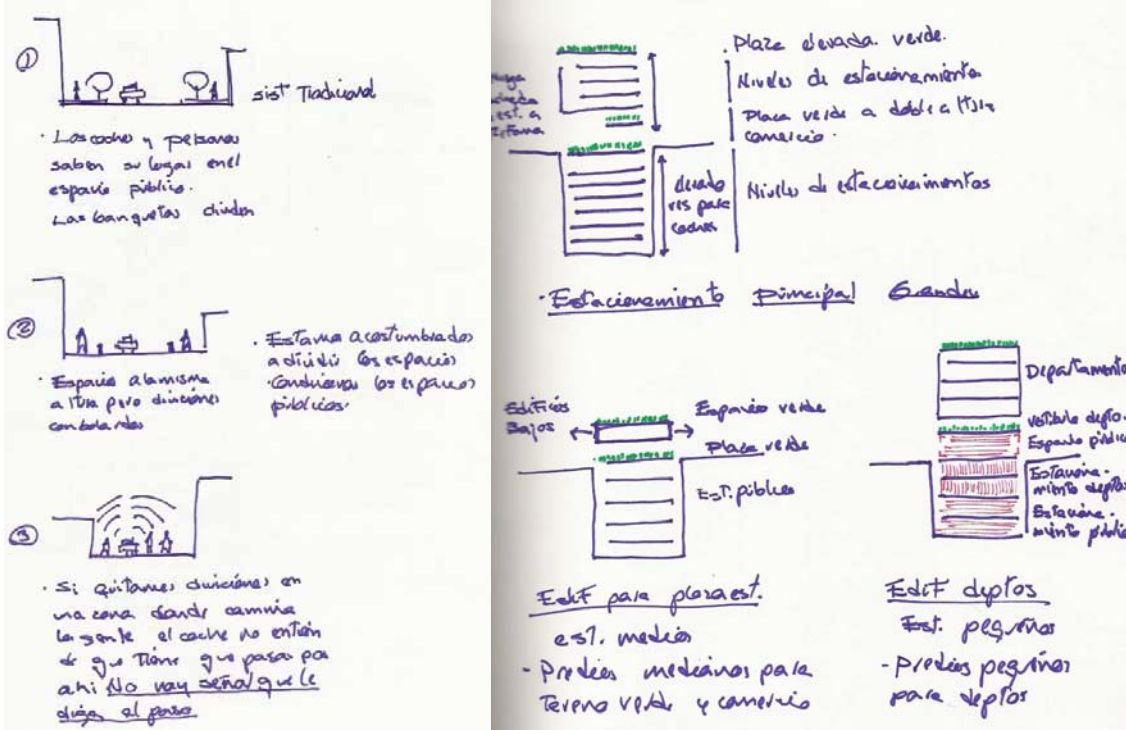 ①
sist Tradicional
· Los coches y personas
saben su lugar en el
espacio público.
Las banquetas dividen
②
· Espacio a la misma
altura pero divisiones
con bolardos
· Estamos acostumbrados
a dividir los espacios
· Condicionar los espacios
públicos.
③
· Si quitamos divisiones en
una zona donde camina
la gente el coche no entien
de que tiene que pasar por
ahi No hay señal que le
diga el paso
. Plaza elevada verde.
Niveles de estacionamiento
Placa verde a doble altura
comercio.
Niveles de estacionamientos
elevado
res para
coches
est. a
· Estacionamiento Principal Grandes
Edificios
Bajos
Espacio verde
Placa verde
Est. público
Edif para plaza est.
est. medios
- Predios medianos para
Terreno verde y comercio
Departamento
vestibulo depto.
Espacio público
Estaciona-
miento deptos
Estaciona-
miento público
Edif deptos
Est. pequeños
- Predios pequeños
para deptos